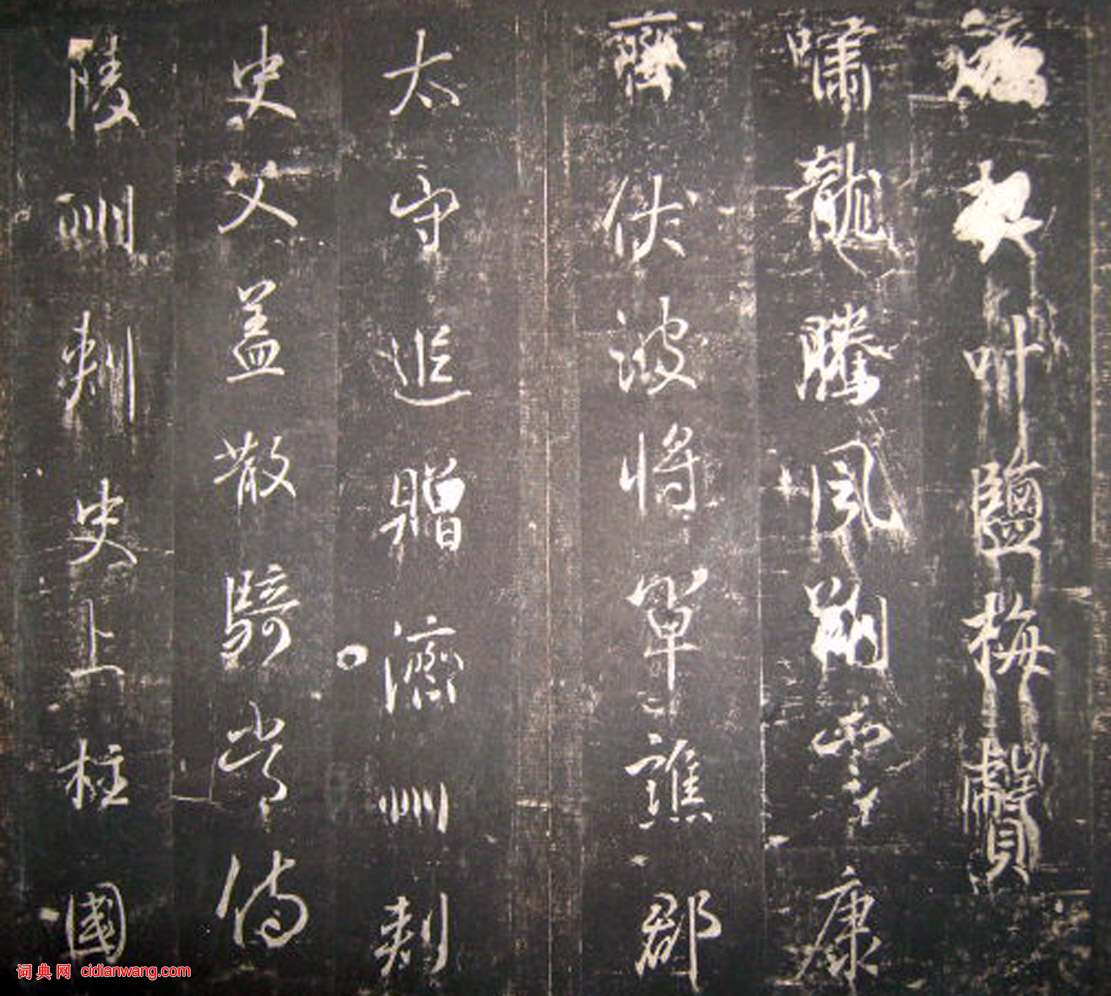 契叶鹽梅
嘯龍騰風翔雲康
齊伏波將軍譙郡
太守追贈濟州刺
史父盖散騎常侍
陵州刺史上柱國
词典网 cidianwang.com